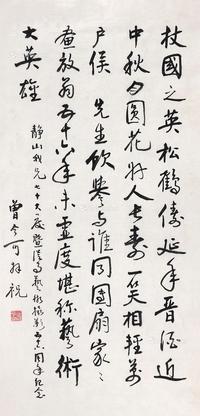 杖國之英松鶴儔延年晉酒近
中秋月圓花好人長壽一笑相輕萬
戶侯 先生飲譽与誰同團扇家々
畫放翁五十六年未虛度堪称藝術
大英雄
静山我兄七十大慶暨從事藝術攝影周年紀念
曾今可拜祝